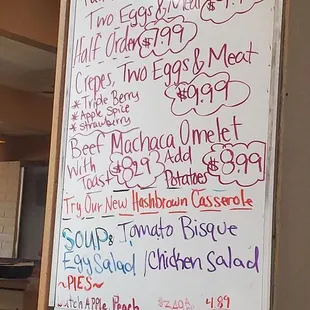 Two Eggs & Meat
Half Order $7.99
Crepes, Two Eggs & Meat
* Triple Berry
* Apple Spice
* Strawberry
$9.99
Beef Machaca Omelet
With $8.29 Add $8.99
Toast Potatoes
Try Our New Hashbrown Casserole
SOUPs Tomato Bisque
Egg Salad / Chicken Salad
~PIES~
Dutch Apple, Peach 4.89